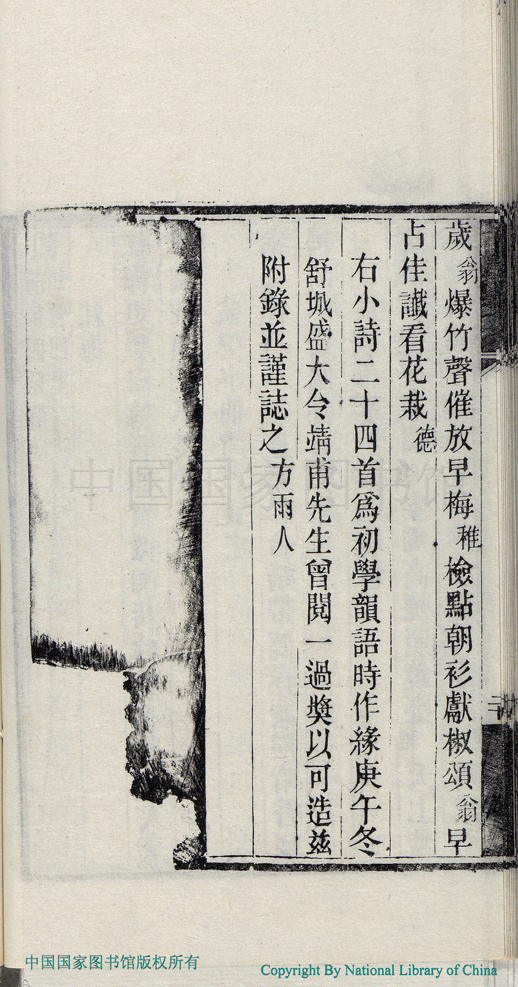 歲翁爆竹聲催放早梅稚檢點朝衫獻椒頌翁早
占佳讖看花栽德
右小詩二十四首爲初學韻語時作緣庚午冬
舒城盛大令靖甫先生曾閱一過奬以可造兹
附錄並謹誌之方雨人
中国国家图书馆版权所有
Copyright By National Library of China